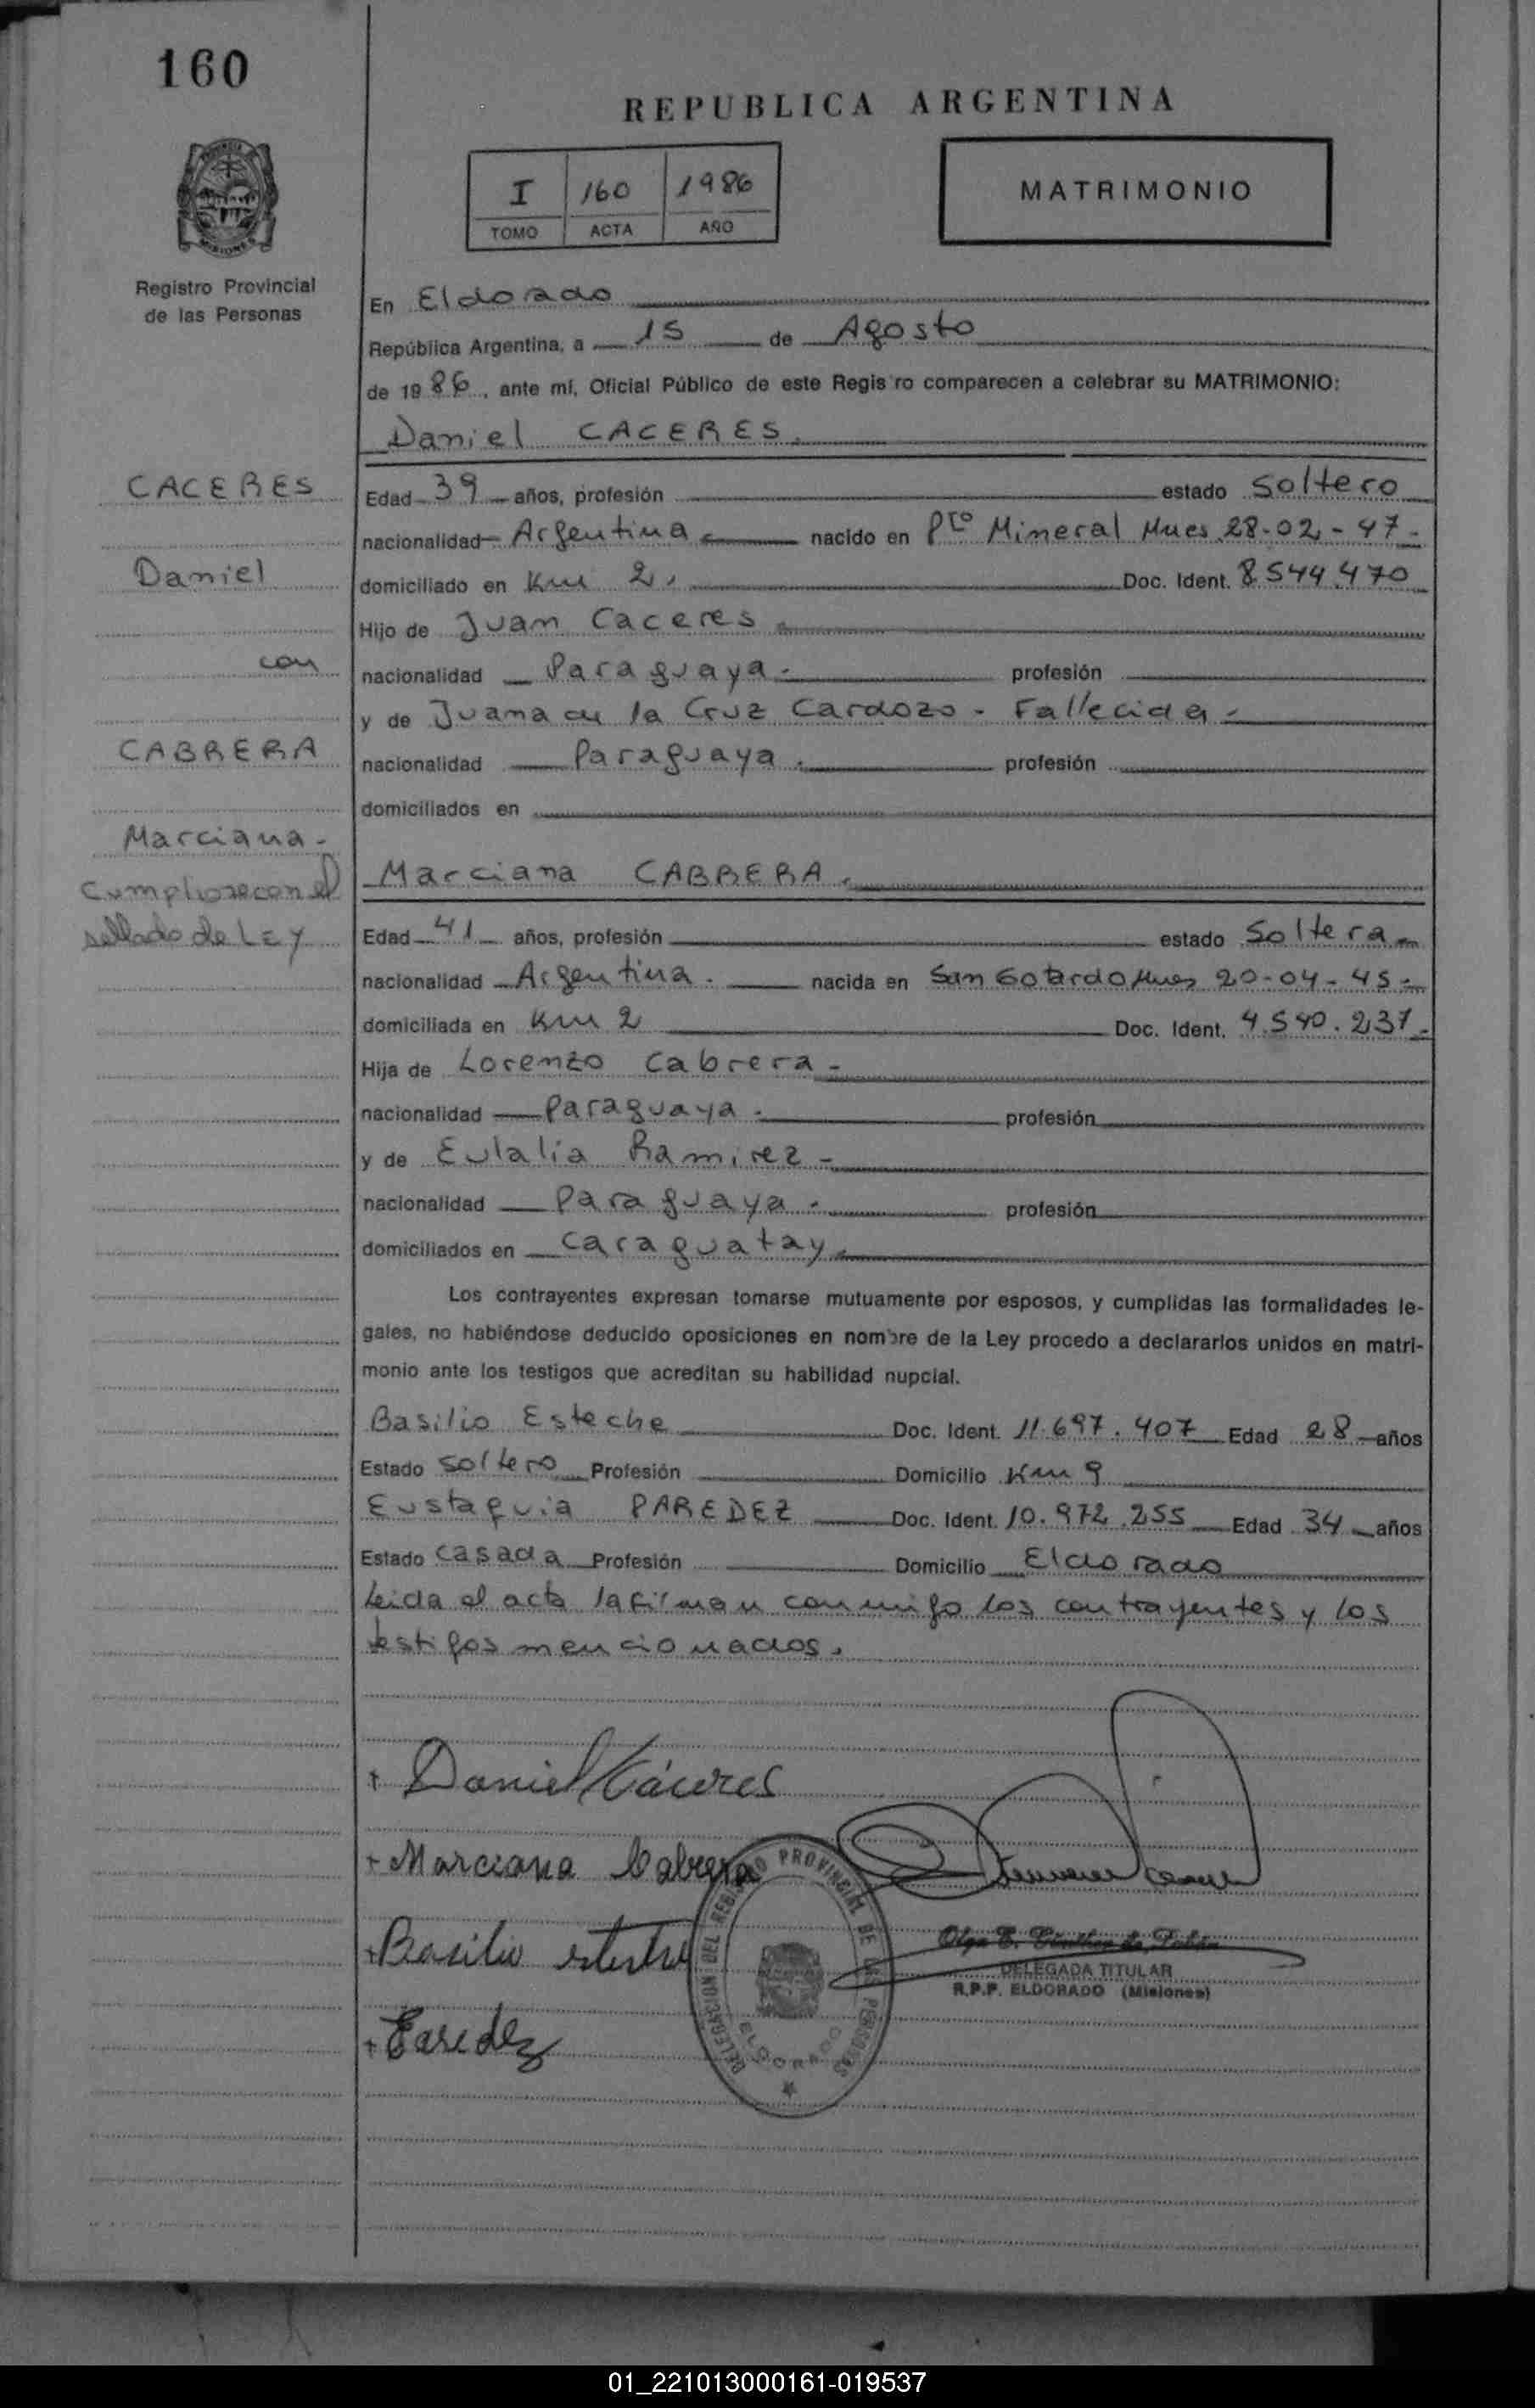 160
REPUBLICA ARGENTINA
I 160 1986
TOMO ACTA AÑO
MATRIMONIO
PROVINCIA DE
MISIONES
Registro Provincial
de las Personas
En Eldorado
República Argentina, a 15 de Agosto
de 1986, ante mí, Oficial Público de este Regis ro comparecen a celebrar su MATRIMONIO:
Daniel CACERES.
CACERES
Daniel
con
CABRERA
Marciana-
Cumpliose con el
sellado de LEY
Edad 39 años, profesión estado Soltero
nacionalidad Argentina nacido en Pto Mineral Mnes 28-02-47-
domiciliado en Km 2. Doc. Ident. 8.544.470
Hijo de Juan Caceres
nacionalidad Paraguaya- profesión
y de Juana de la Cruz Cardozo - Fallecida-
nacionalidad Paraguaya. profesión
domiciliados en
Marciana CABRERA.
Edad 41 años, profesión estado Soltera
nacionalidad Argentina. nacida en San Gotardo Mnes 20-04-45-
domiciliada en Km 2 Doc. Ident. 4.540.237-
Hija de Lorenzo Cabrera-
nacionalidad Paraguaya. profesión
y de Eulalia Ramirez-
nacionalidad Paraguaya. profesión
domiciliados en Caraguatay.
Los contrayentes expresan tomarse mutuamente por esposos, y cumplidas las formalidades le-
gales, no habiéndose deducido oposiciones en nombre de la Ley procedo a declararlos unidos en matri-
monio ante los testigos que acreditan su habilidad nupcial.
Basilio Esteche Doc. Ident. 11.697.407 Edad 28 años
Estado Soltero Profesión Domicilio Km 9
Eustaquia PAREDEZ Doc. Ident. 10.972.255 Edad 34 años
Estado Casada Profesión Domicilio Eldorado
Leida el acta la firman conmigo los contrayentes y los
testigos mencionados.
Daniel Cáceres
Marciana Cabrera
Basilio
DELEGACION DEL REGISTRO PROVINCIAL DE LAS PERSONAS
ELDORADO
Olga E. de
DELEGADA TITULAR
R.P.P. ELDORADO (Misiones)
Paredez
01_221013000161-019537